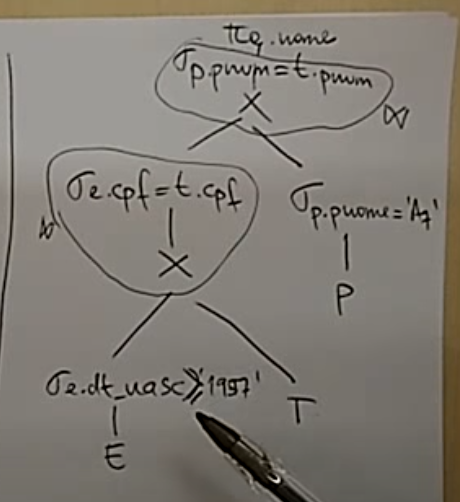 πe.nome
σp.pnum=t.pnum
X
⋈
σe.cpf=t.cpf
⋈
X
σp.pnome='Az'
P
σe.dt_nasc>'1957'
T
E